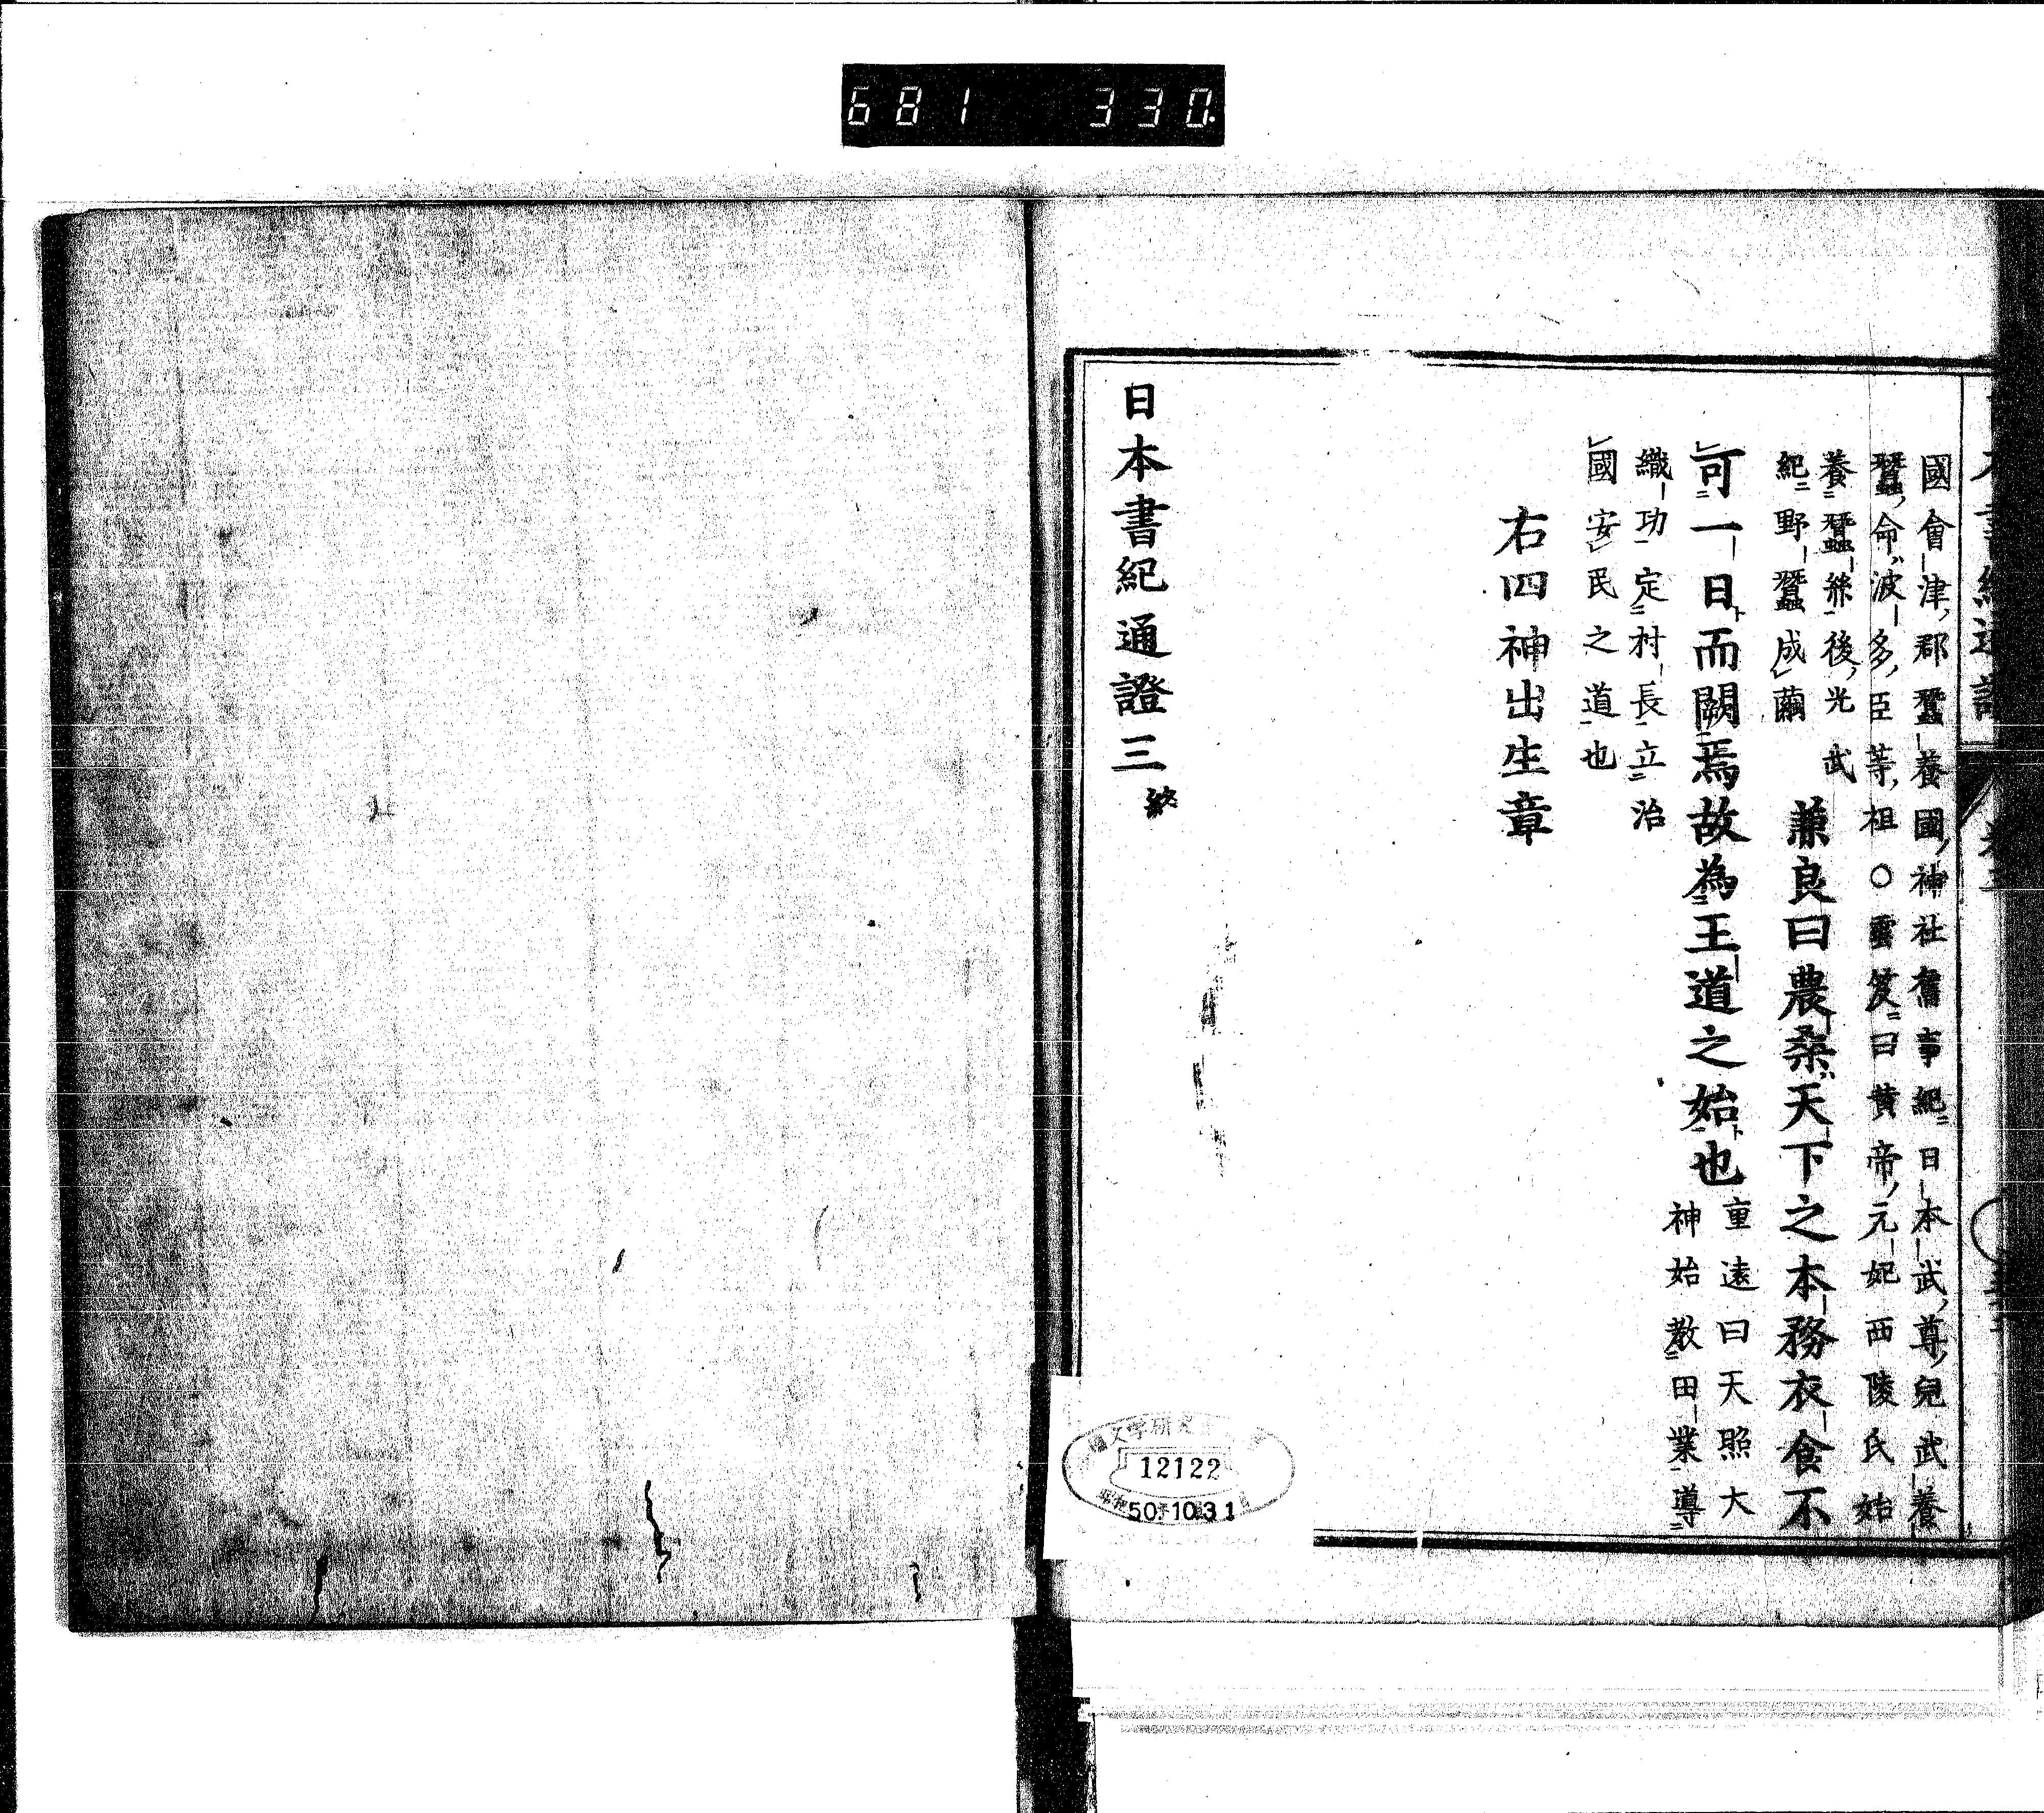 681 330.
國會津郡蠶養國神社舊事紀曰本武尊兒武養
蠶命波多臣等祖○雲笈曰黄帝元妃西陵氏始
養蠶絲後光武
紀野蠶成繭
兼良曰農桑天下之本務衣食不
可一日而闕焉故為王道之始也
重遠曰天照大
神始教田業導
織功定村長立治
國安民之道也
右四神出生章
日本書紀通證三終
12122
50.10.31